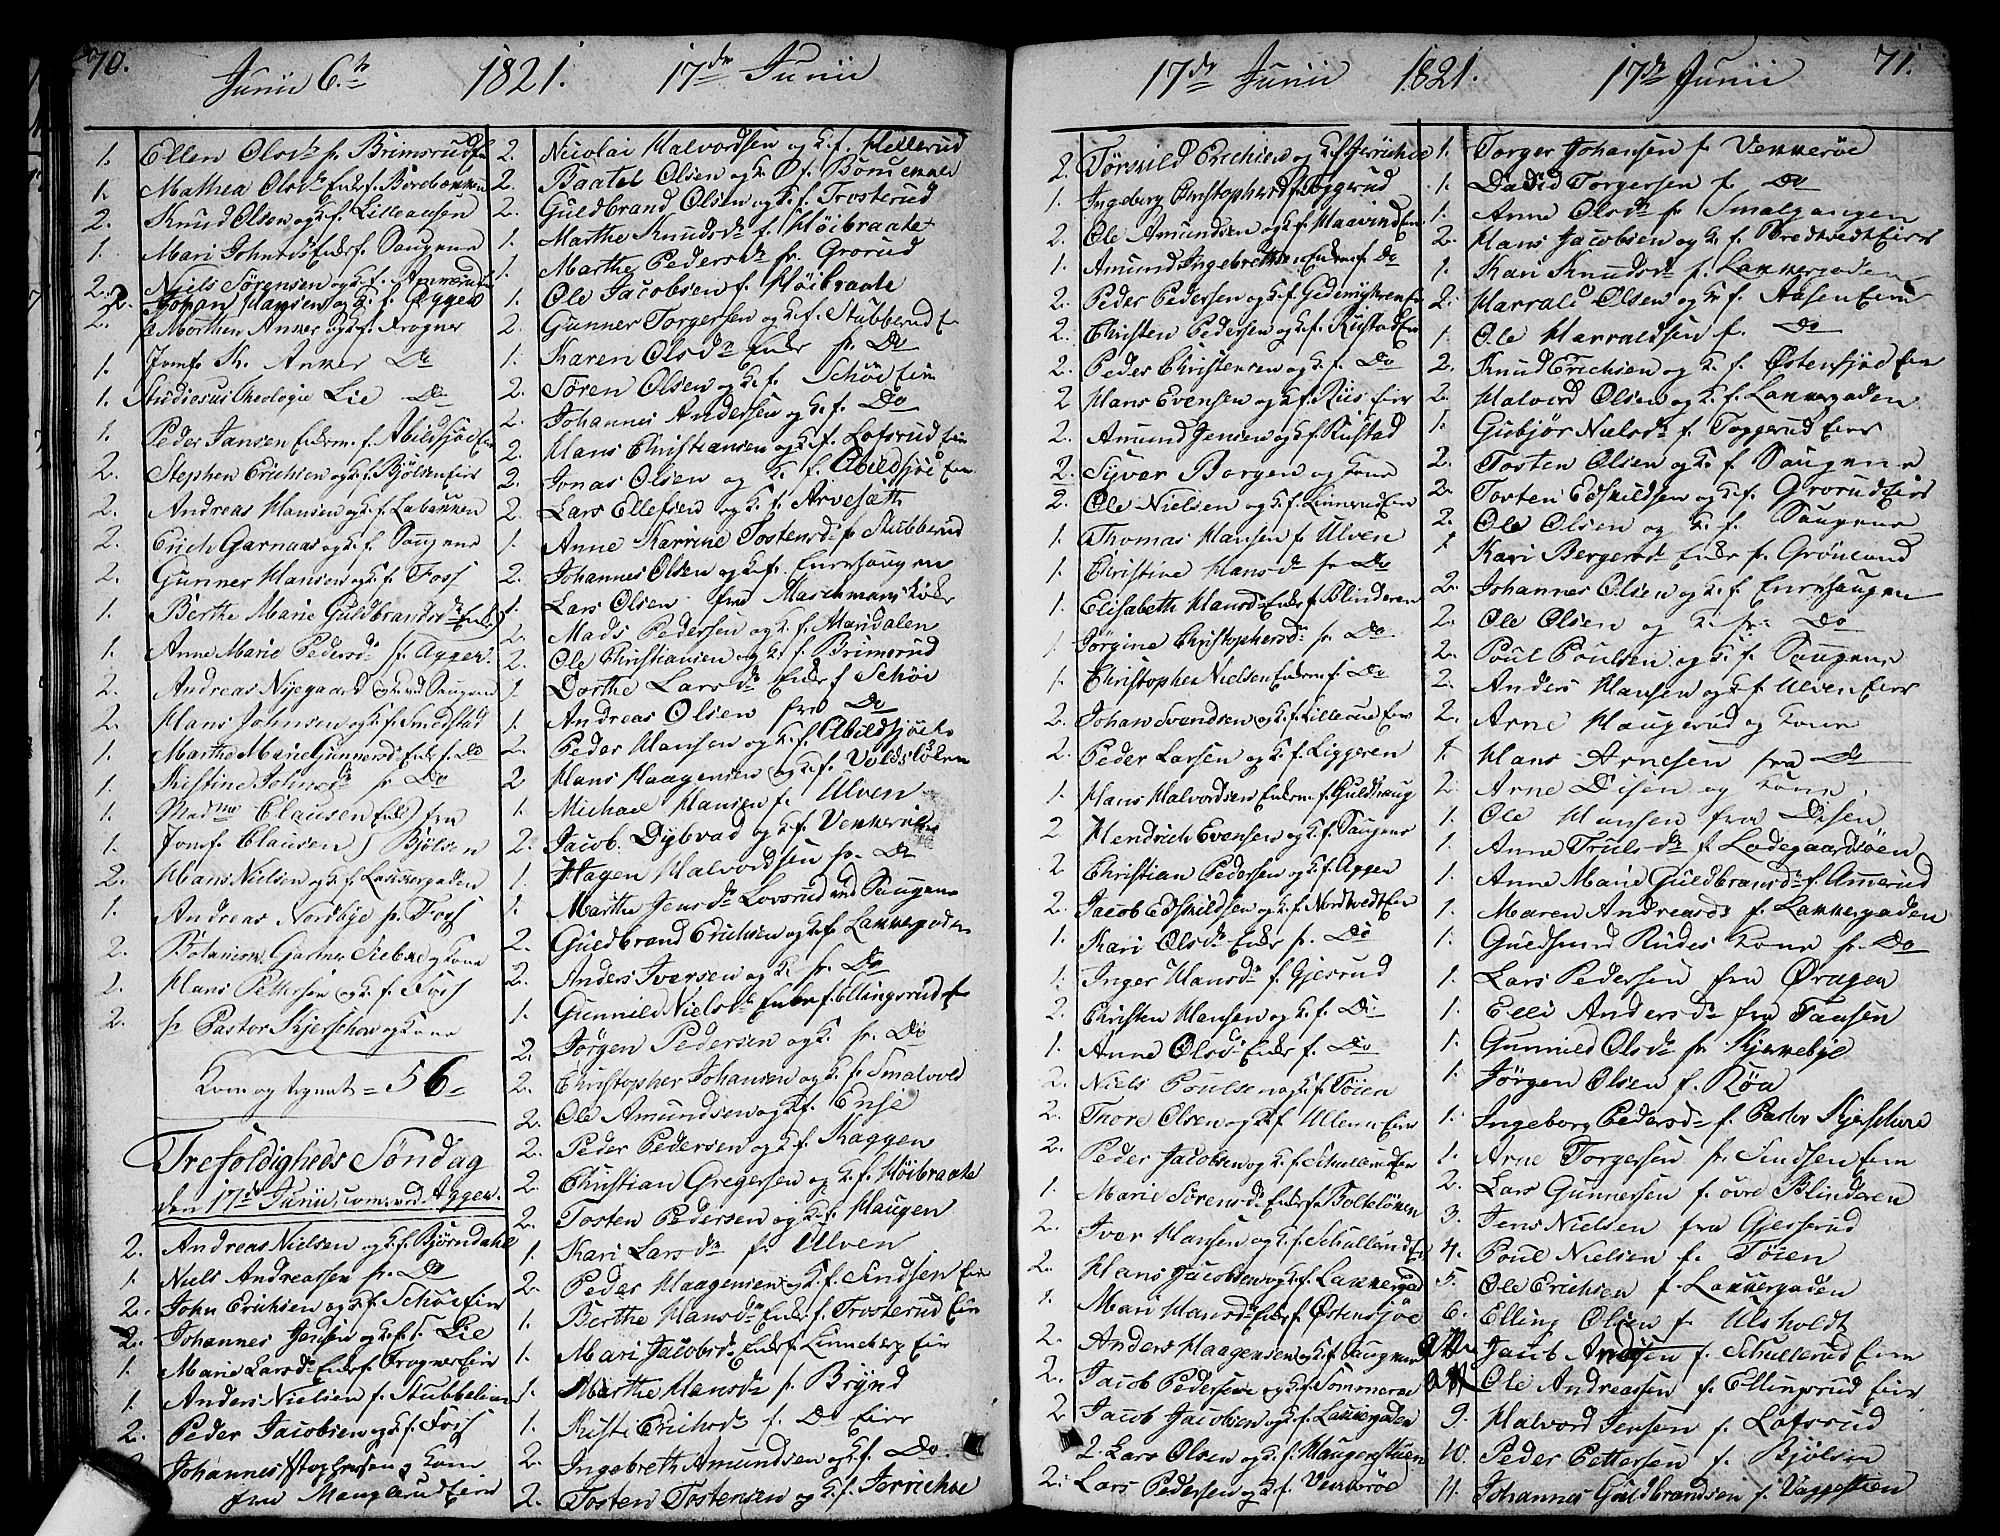 70.
Junii 6te 1821. 17de Junii
1. Ellen Olsdr fr. Brimsrud
1. Mathea Olsdr Enke f. Borebakken
2. Knud Olsen og K. f. Lilleaasen
1. Mari Johnsdr Enke f. Saugene
2. Niels Sørensen og K. f.
2. Johan Hansen og K. f. Agger
2. Morthen Anker og K. f. Frogner
1. Jomf. K. Anker Do
1. Studiosus Theologie Lie Do
1. Peder Jansen Enkem. f. Abildsøe Eie
2. Stephen Erichsen og K. f. Bjølsen Eie
2. Andreas Hansen og K. f. Labakken
2. Erich Garnaas og K. f. Saugene
2. Gunner Hansen og K. f. Foss
1. Berthe Marie Guldbrandsdr Enke
1. Anne Marie Pedersdr f. Agger.
2. Andreas Nyegaard og K. ved Saugene
2. Hans Johnsen og K. f. Smedstad
1. Marthe Marie Gunnersdr Enke f. Do
1. Kristine Johnsdr fr. Do
1. Madme Clausen Enke fra
1. Jomf. Clausen Bjølsen
2. Hans Nielsen og K. f. Lakkergaden
1. Andreas Nordbye fr. Foss
2. Botanisk Gartner Siebke og Kone
2. Hans Pettersen og K. f. Foss
2. hr Pastor Kjerschow og Kone
Kom og tegnet = 56 =
Trefoldigheds Søndag
den 17de Junii, com. ved Agger.
2. Andreas Nielsen og K. f. Bjørndahl
1. Niels Andreassen fr. Do
2. John Erichsen og K. f. Schøi Eie
2. Johannes Jensen og K. f. Lie
1. Marie Larsdr Enke f. Frogner Eie
1. Anders Nielsen f. Stubbelian
2. Peder Jacobsen og K. f. Foss
2. Johannes Stophersen og Kone
fra Manglerud Eie
2. Nicolai Halvordsen og K. f. Hellerud
2. Baatel Olsen og K. f.
2. Guldbrand Olsen og K. f. Trosterud
1. Marthe Knudsdr f. Høibraate
1. Marthe Pedersdr fr. Grorud
1. Ole Jacobsen f. Høibraate
2. Gunner Torgersen og K. f. Stubberud E
1. Karen Olsdr Enke fr. Do
2. Søren Olsen og K. f. Schøi Eie
2. Johannes Andersen og K. f. Do
2. Hans Christiansen og K. f. Lofsrud Eie
2. Jonas Olsen og K. f. Abildsøe Eie
2. Lars Ellefsen og K. f. Arvesæth
1. Anne Karrine Tostensdr fr. Stubberud
2. Johannes Olsen og K. f. Enersaugene
1. Lars Olsen fra Maschmans Løkke
2. Mads Pedersen og K. f. Maridalen
2. Ole Christiansen og K. f. Brimsrud
1. Dorthe Larsdr Enke f. Schøi
1. Andreas Olsen fra Do
2. Peder Hansen og K. f. Abildsøe
2. Hans Haagensen og K. f. Voldsløkken
1. Michael Hansen f. Ulven
2. Jacob Dybvad og K. f. Vekkerøe
1. Hagen Halvordsen fr. Do
1. Marthe Jensdr Lovsrud ved Saugene
2. Guldbrand Erichsen og K. f. Lakkergaden
2. Anders Iversen og K. fr. Do
1. Gunnild Nielsdr Enke f. Ellingsrud
2. Jørgen Pedersen og K. fr. Do
2. Christopher Johansen og K. f. Smalvold
2. Ole Amundsen og K. f. Ense
2. Peder Pedersen og K. f. Kaggen
2. Christian Gregersen og K. f. Høibraate
2. Tosten Pedersen og K. f. Haugen
1. Kari Larsdr f. Ulven
2. Peder Haagensen og K. f. Sindsen Eie
1. Berthe Hansdr Enke f. Trosterud Eie
1. Mari Jacobsdr Enke f. Linneberg Eie
1. Marthe Hansdr f. Brynd
1. Kristi Erichsdr f. Do Eie
2. Ingebreth Amundsen og K. f. Do
2. Tosten Tostensen og K. f. Jerrichoe
71.
17de Junii 1821. 17de Junii
2. Torkild Erichsen og K. f. Jerrichoe
1. Ingeborg Christophersdr f. Toggerud
2. Ole Amundsen og K. f. Haavind Eie
1. Amund Ingebrethsen Enkem. f. Do
2. Peder Pedersen og K. f.
2. Christen Pedersen og K. f. Rustad Eie
2. Peder Christensen og K. f. Do
2. Hans Evensen og K. f. Riis Eie
2. Amund Jensen og K. f. Rustad
2. Syver Borgen og Kone
2. Ole Nielsen og K. f. Linnerud Eie
1. Thomas Hansen f. Ulven
1. Christine Hansdr fr. Do
1. Elisabeth Hansdr Enke f. Blinderen
1. Jørgine Christophersdr fr. Do
1. Christopher Nielsen Enkem. f. Do
2. Johan Svendsen og K. f. Lilleaas Eie
2. Peder Larsen og K. f. Liggeren
1. Hans Halvordsen Enkem. f. Guldhaug
2. Hendrich Evensen og K. f. Saugene
2. Christian Pedersen og K. f. Agger
2. Jacob Edskildsen og K. f. Nordtvedt Eie
1. Kari Olsdr Enke fr. Do
1. Inger Hansdr f. Gjesrud
2. Christen Hansen og K. f. Do
1. Anne Olsdr Enke f. Do
2. Niels Poulsen og K. f. Tøien
2. Thore Olsen og K. f. Ullern Eie
2. Peder Jacobsen og K. f. Schullerud Eie
1. Marie Sørensdr Enke f. Bolteløkken
2. Iver Hansen og K. f. Schullerud Eie
2. Hans Jacobsen og K. f. Lakkergad
1. Mari Hansdr Enke f. Østensjøe
2. Anders Haagensen og K. f. Saugene
2. Jacob Pedersen og K. f. Sommeroe
2. Jacob Jacobsen og K. f. Lakkergaden
2. Lars Olsen og K. f. Haugerstuen
2. Lars Pedersen og K. f. Vekkerøe
1. Torger Johansen f. Vekkerøe
1. David Torgersen f. Do
1. Anne Olsdr fr. Smalgangen
2. Hans Jacobsen og K. f. Bredtvedt Eie
1. Kari Knudsdr f. Lakkergaden
2. Harrald Olsen og K. f. Aasen Eie
1. Ole Harraldsen f. Do
2. Knud Erichsen og K. f. Østensjøe Eie
2. Halvord Olsen og K. f. Lakkergaden
1. Gubjør Nielsdr f. Toggerud Eie
2. Tosten Olsen og K. f. Saugene
2. Tosten Edskildsen og K. f. Grorud Eie
2. Ole Olsen og K. f. Saugene
1. Kari Bergersdr Enke fr. Grønland
2. Johannes Olsen og K. f. Enersaugene
2. Ole Olsen og K. fr. Do
2. Poul Poulsen og K. f. Saugene
2. Anders Hansen og K. f. Ulven Eie
2. Arne Haugerud og Kone
1. Hans Arnesen fra Do
2. Arne Disen og Kone
1. Ole Hansen fra Disen
1. Anne Trulsdr f. Ladegaardsøen
1. Anne Marie Guldbrandsdr f. Ammerud
1. Maren Andreasdr f. Lakkergaden
1. Gudmund Rudes Kone fr. Do
1. Lars Pedersen fra Øragen
1. Elli Andersdr fra Taasen
1. Gunnild Olsdr fr. Kjerkebye
1. Jørgen Olsen f. Røa
1. Ingeborg Pedersdr f. Pastor Kjerschow
1. Arne Torgersen fr. Sindsen Eie
2. Lars Gunnersen f. øvre Blinderen
3. Jens Nielsen fra Gjesserud
4. Poul Nielsen f. Tøien
5. Ole Erichsen f. Lakkergaden
6. Elling Olsen f. Ulsholdt
Jacob Andersen f. Schullerud Eie
Ole Andreassen f. Ellingsrud Eie
9. Halvord Jensen f. Lofsrud
10. Peder Pettersen f. Bjølsen
11. Johannes Guldbrandsen f. Vaggestien